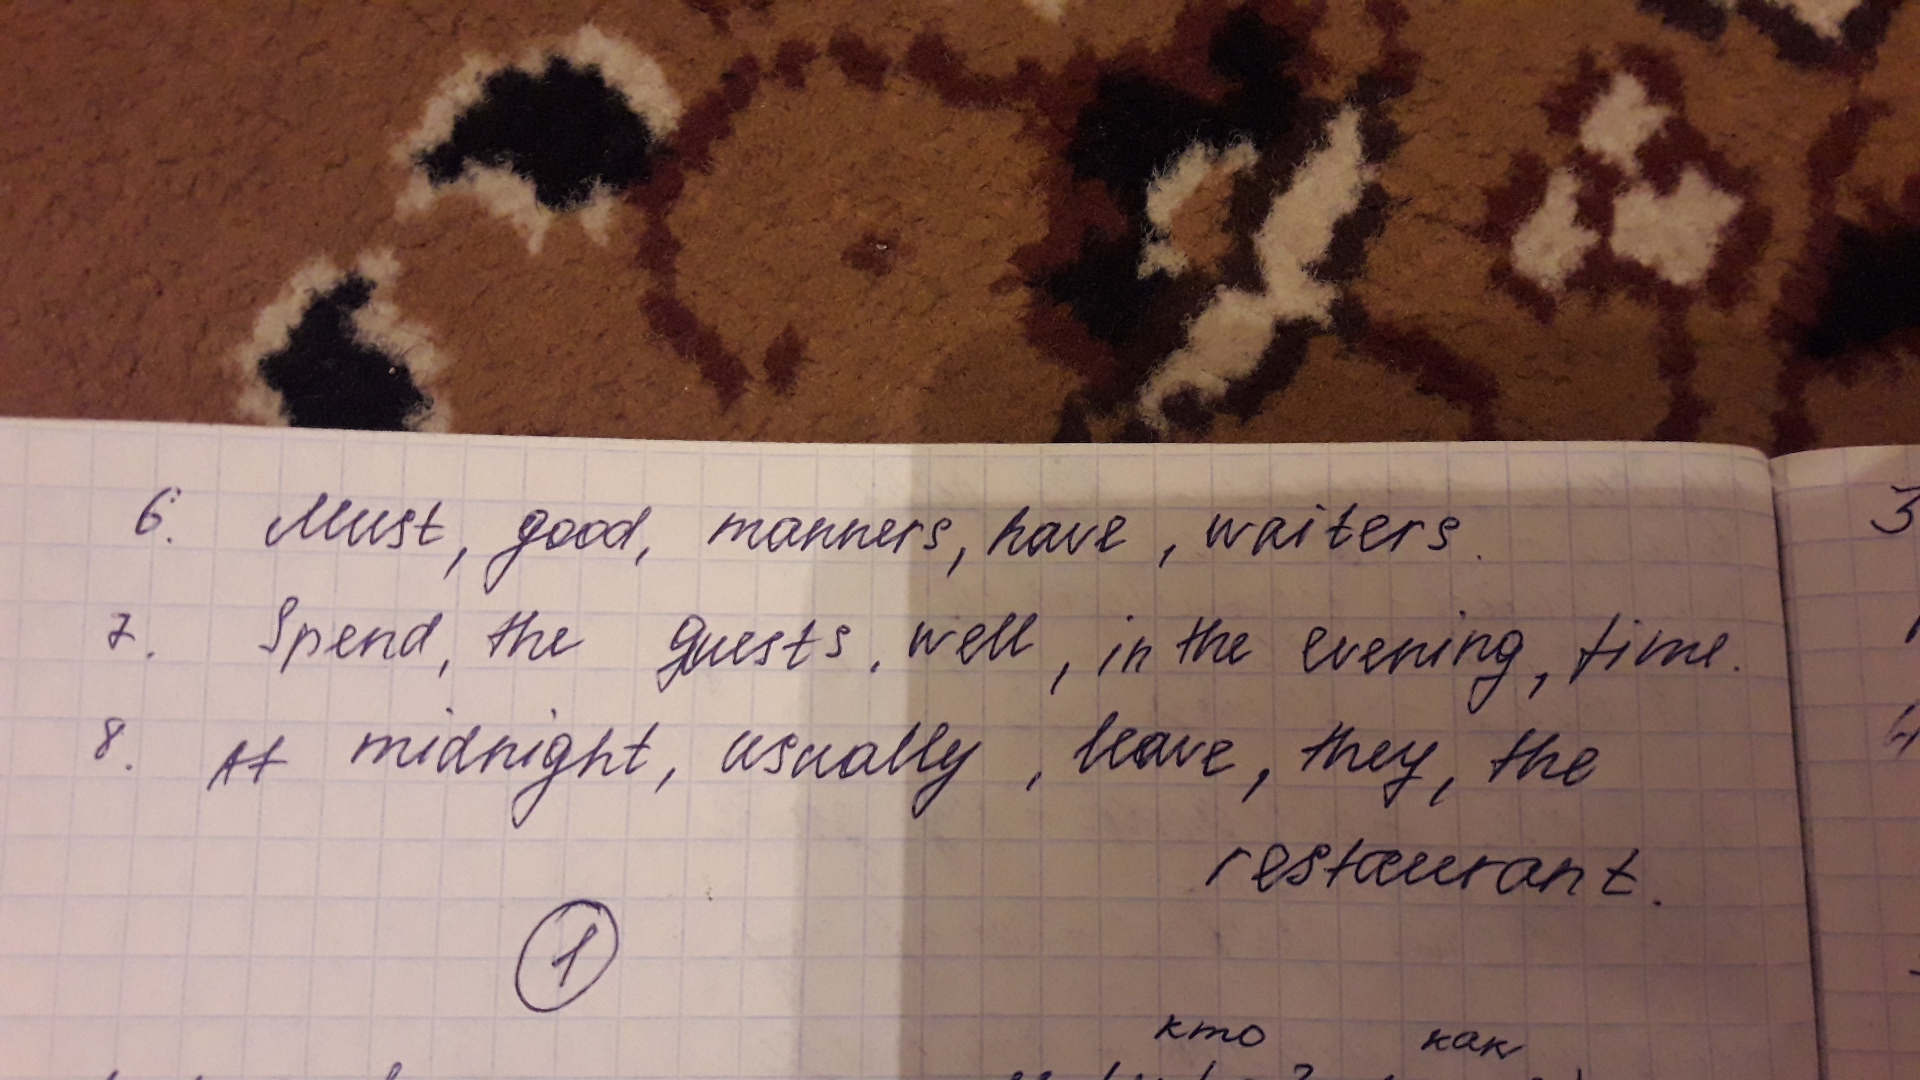 6. Must, good, manners, have, waiters.
7. Spend, the guests, well, in the evening, time.
8. At midnight, usually, leave, they, the
restaurant.
1
кто как
3
4